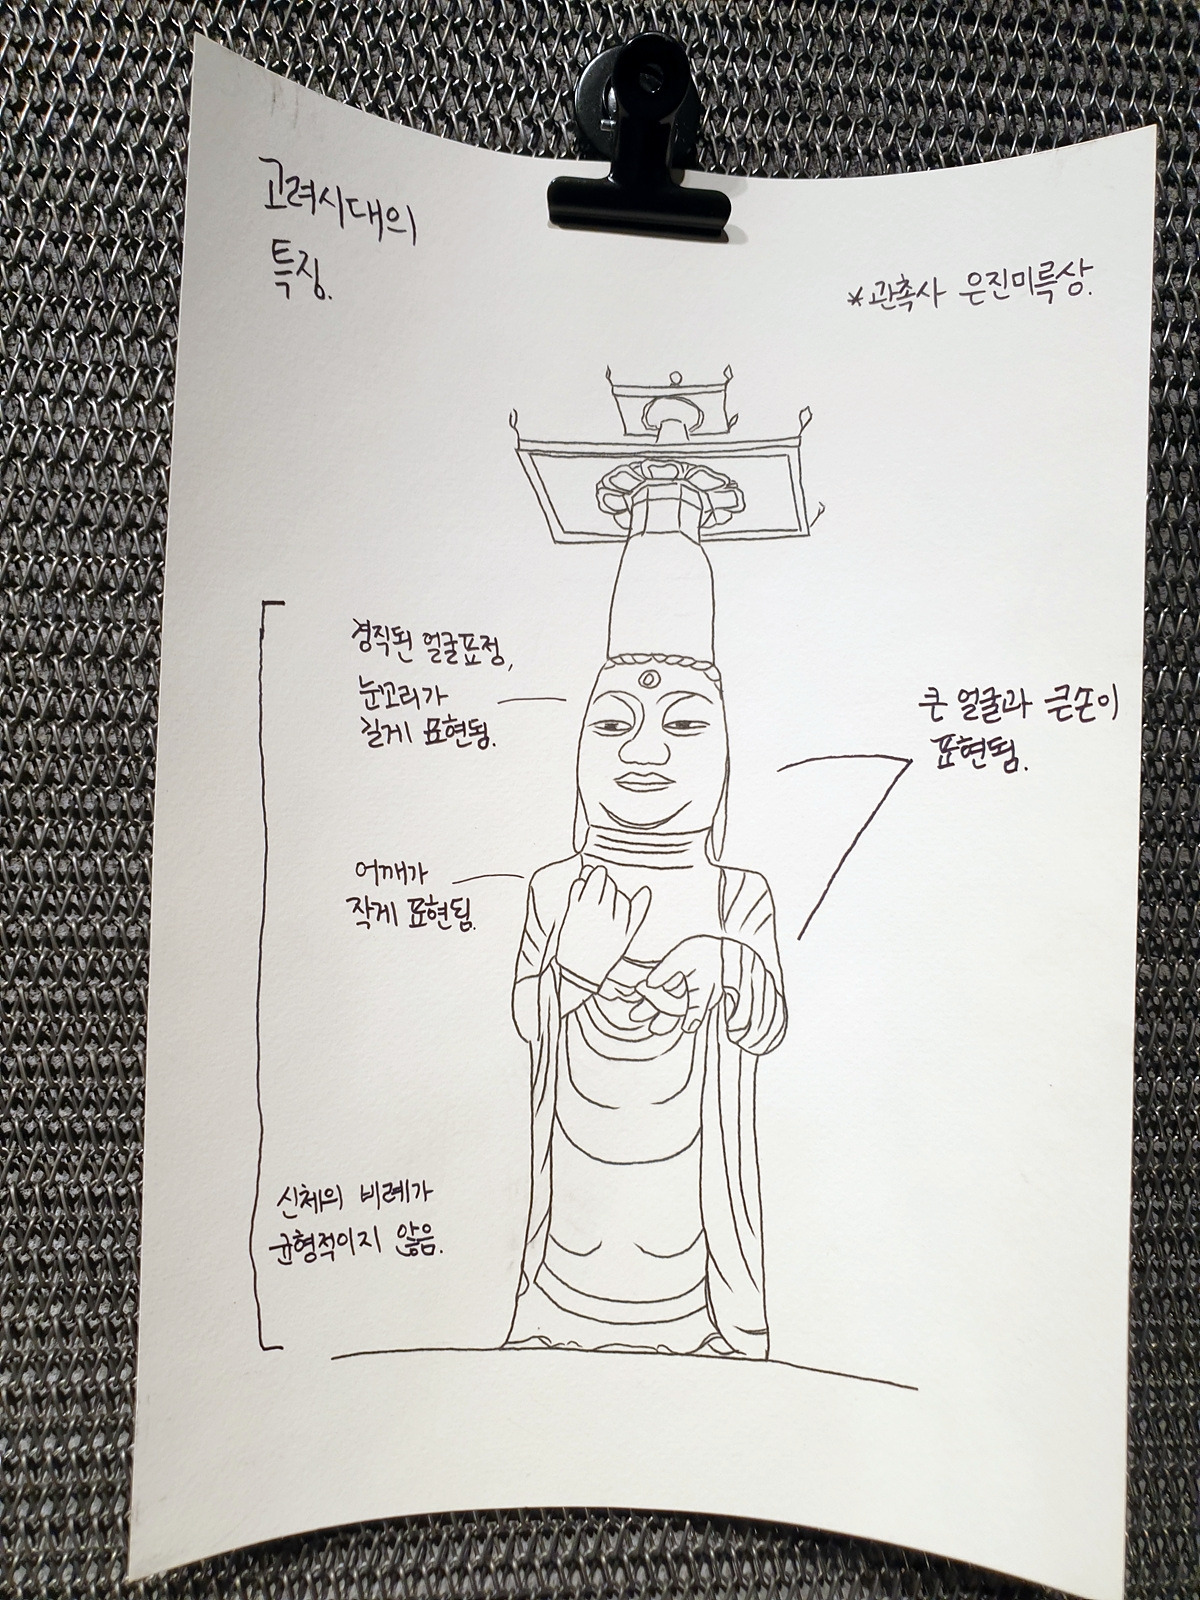 고려시대의
특징.
*관촉사 은진미륵상.
경직된 얼굴표정,
눈꼬리가
길게 표현됨.
큰 얼굴과 큰손이
표현됨.
어깨가
작게 표현됨.
신체의 비례가
균형적이지 않음.